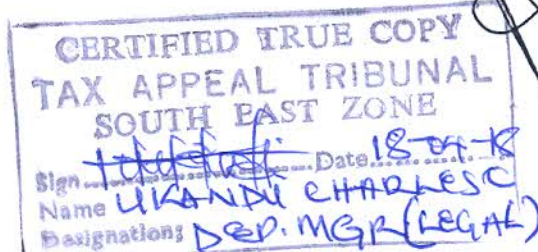 CERTIFIED TRUE COPY
TAX APPEAL TRIBUNAL
SOUTH EAST ZONE
Sign.............Date 18-04-18
Name UKANDU CHARLES C
Designation: DEP. MGR (LEGAL)